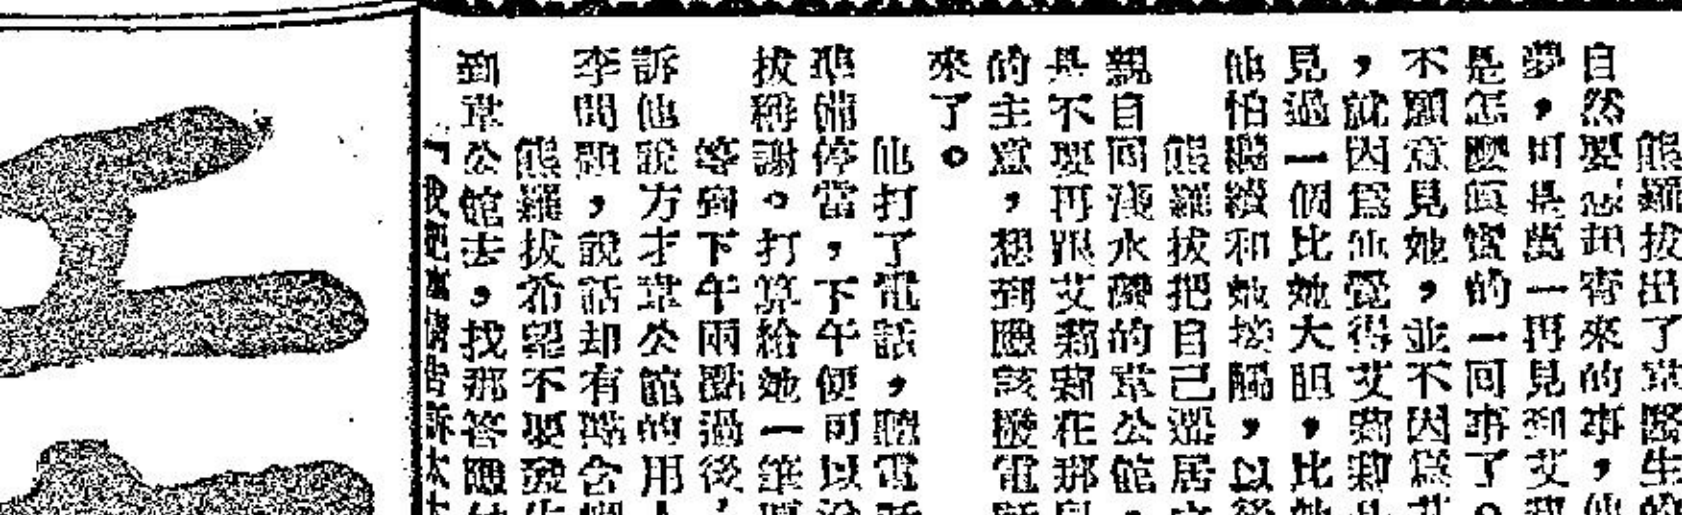 熊羅拔出了韋醫生的
自然要想起寄來的事，他
夢，可是萬一再見到艾莉
是怎麼眞實的一回事了。
不願意見她，並不因爲艾
，就因爲他覺得艾莉莉
見過一個比她大胆，比她
他怕繼續和她接觸，以後
熊羅拔把自己遷居
親自回淺水灣的韋公館，
是不要再跟艾莉莉在那
的主意，想到應該撥電
來了。
他打了電話，聽電話
準備停當，下午便可以
拔稱謝。打算給她一筆
等到下午兩點過後，
訴他說方才韋公館的用人
李問題，說話却有點含
熊羅拔希望不要發生
到韋公館去，找那答應
『我把事情告訴太太